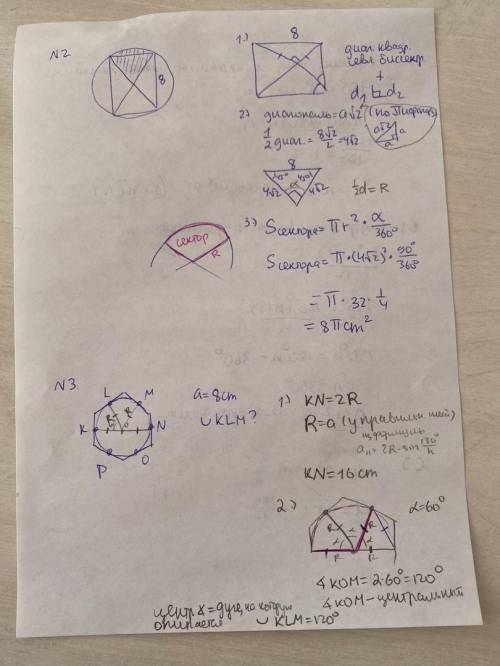 N2
8
1.)
8
диаг. квадр.
явл. биссектр
+
d₁ ⊥ d₂
2)
диагональ = a√2 (по Пифагору)
a√2
a
a
1/2 диаг. = 8√2/2 = 4√2
8
45° 45°
4√2 α 4√2
1/2 d = R
сектор
R
3)
Sсектора = πr² · α/360°
Sсектора = π · (4√2)² · 90°/360°
= π · 32 · 1/4
= 8π cm²
N3
L M
K N
P O
R
a = 8cm
∪ KLM ?
1)
KN = 2R
R = a (у правильн шест)
из формулы
aₙ = 2R · sin 180°/n
KN = 16 cm
2)
α = 60°
R R
α α α
R R
∡ KOM = 2·60° = 120°
∡ KOM – центральный
центр ∡ = дуге, на которую
опирается
∪ KLM = 120°